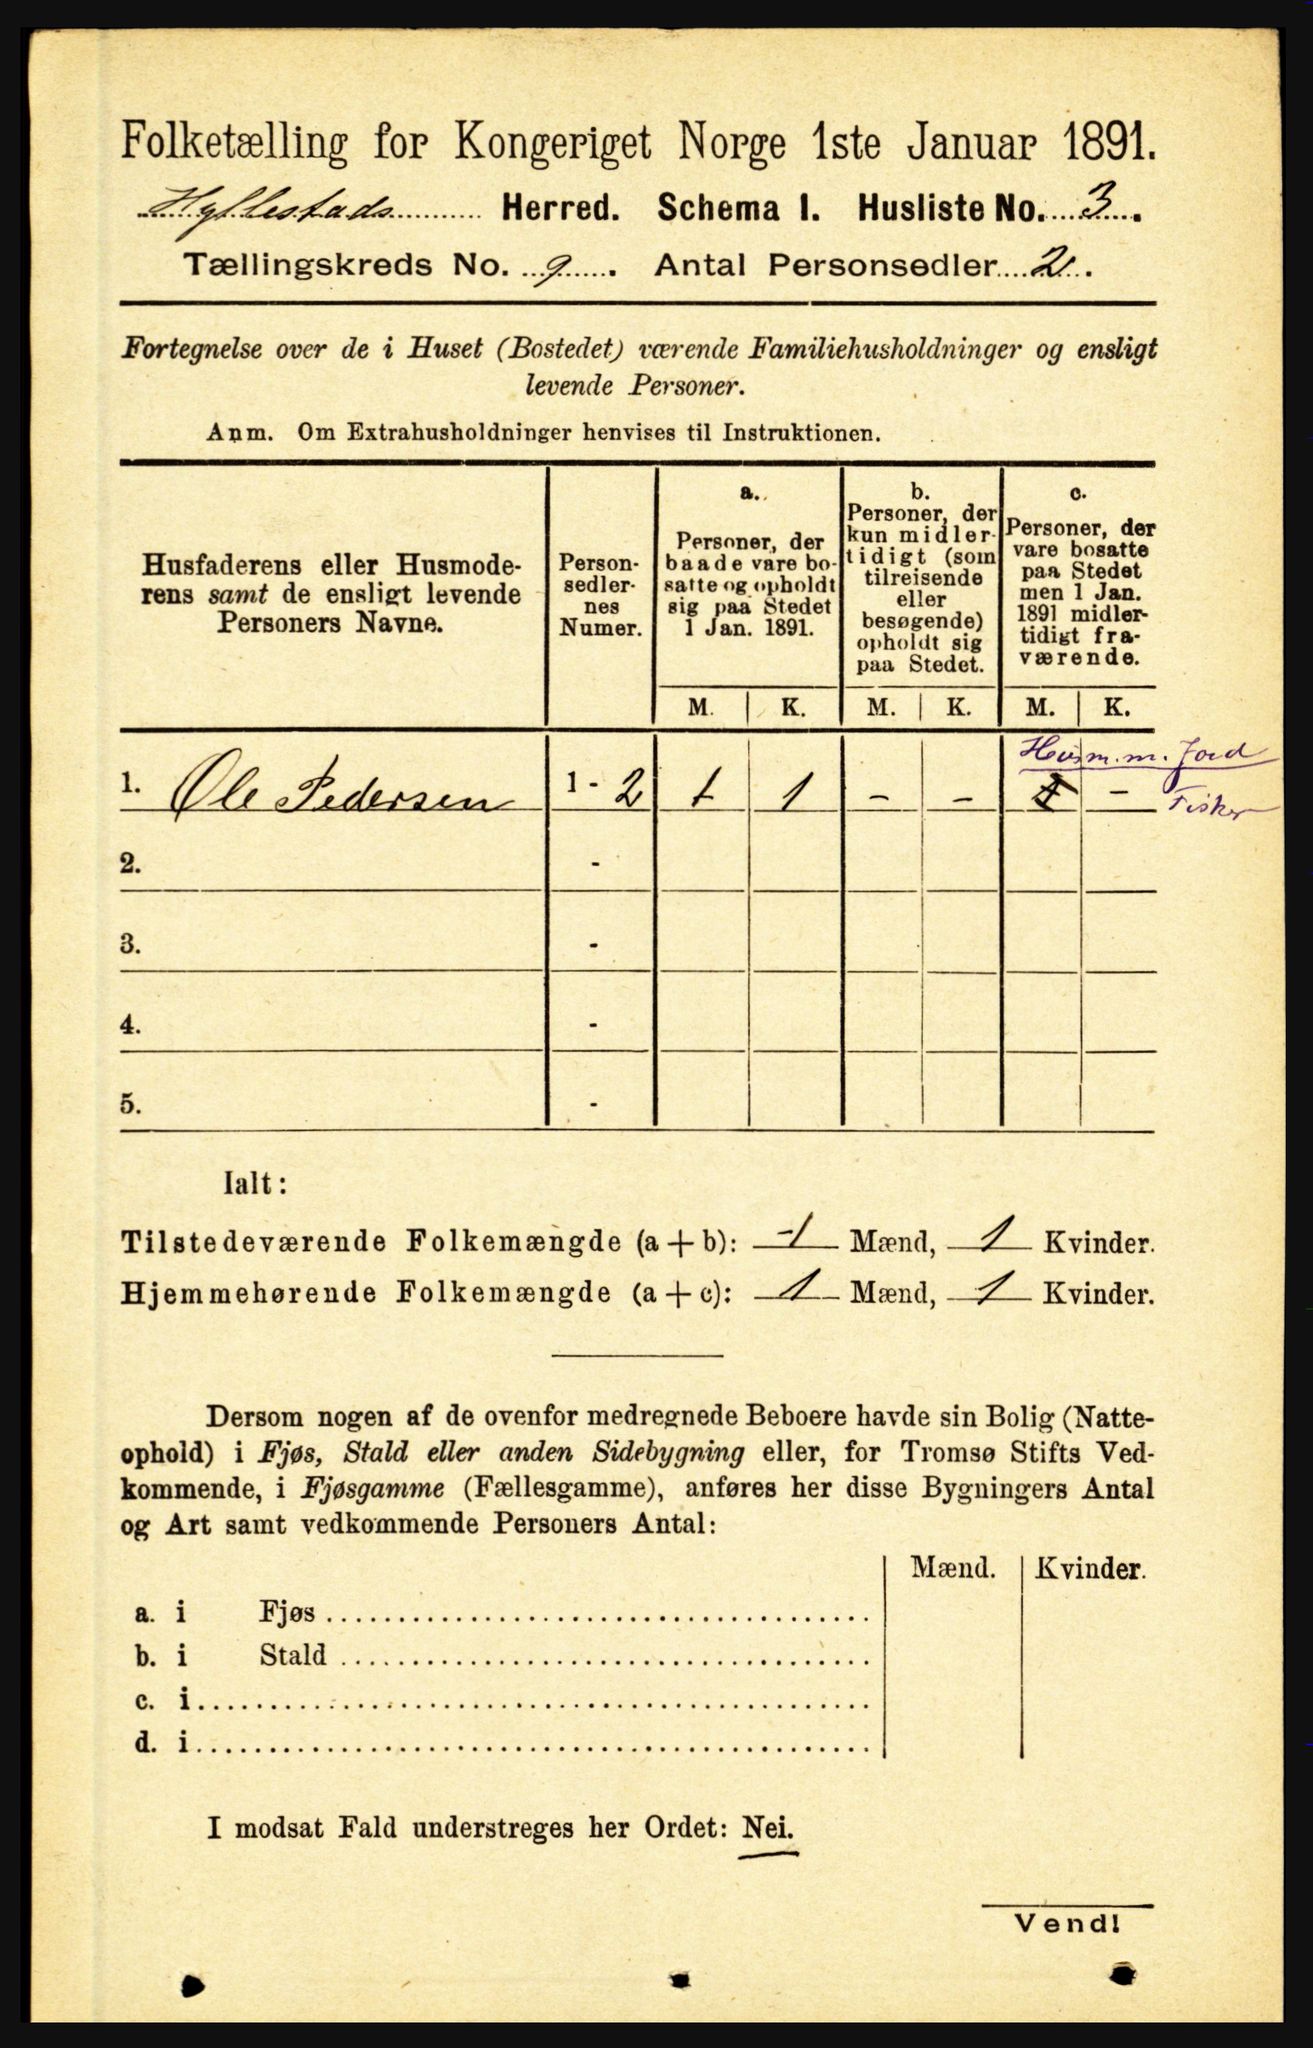 Folketælling for Kongeriget Norge 1ste Januar 1891.
Hyllestads Herred. Schema I. Husliste No. 3.
Tællingskreds No. 9. Antal Personsedler 2.
Fortegnelse over de i Huset (Bostedet) værende Familiehusholdninger og ensligt
levende Personer.
Anm. Om Extrahusholdninger henvises til Instruktionen.
Husfaderens eller Husmode-
rens samt de ensligt levende
Personers Navne.
Person-
sedler-
nes
Numer.
a.
Personer, der
baade vare bo-
satte og opholdt
sig paa Stedet
1 Jan. 1891.
b.
Personer, der
kun midler-
tidigt (som
tilreisende
eller
besøgende)
opholdt sig
paa Stedet.
c.
Personer, der
vare bosatte
paa Stedet
men 1 Jan.
1891 midler-
tidigt fra-
værende.
M. K. M. K. M. K.
Husm. m. Jord
1. Ole Pedersen 1 - 2 1 1 - - 1 - Fisker
2. -
3. -
4. -
5. -
Ialt:
Tilstedeværende Folkemængde (a + b): 1 Mænd, 1 Kvinder.
Hjemmehørende Folkemængde (a + c): 1 Mænd, 1 Kvinder.
Dersom nogen af de ovenfor medregnede Beboere havde sin Bolig (Natte-
ophold) i Fjøs, Stald eller anden Sidebygning eller, for Tromsø Stifts Ved-
kommende, i Fjøsgamme (Fællesgamme), anføres her disse Bygningers Antal
og Art samt vedkommende Personers Antal:
Mænd. Kvinder.
a. i Fjøs
b. i Stald
c. i
d. i
I modsat Fald understreges her Ordet: Nei.
Vend!